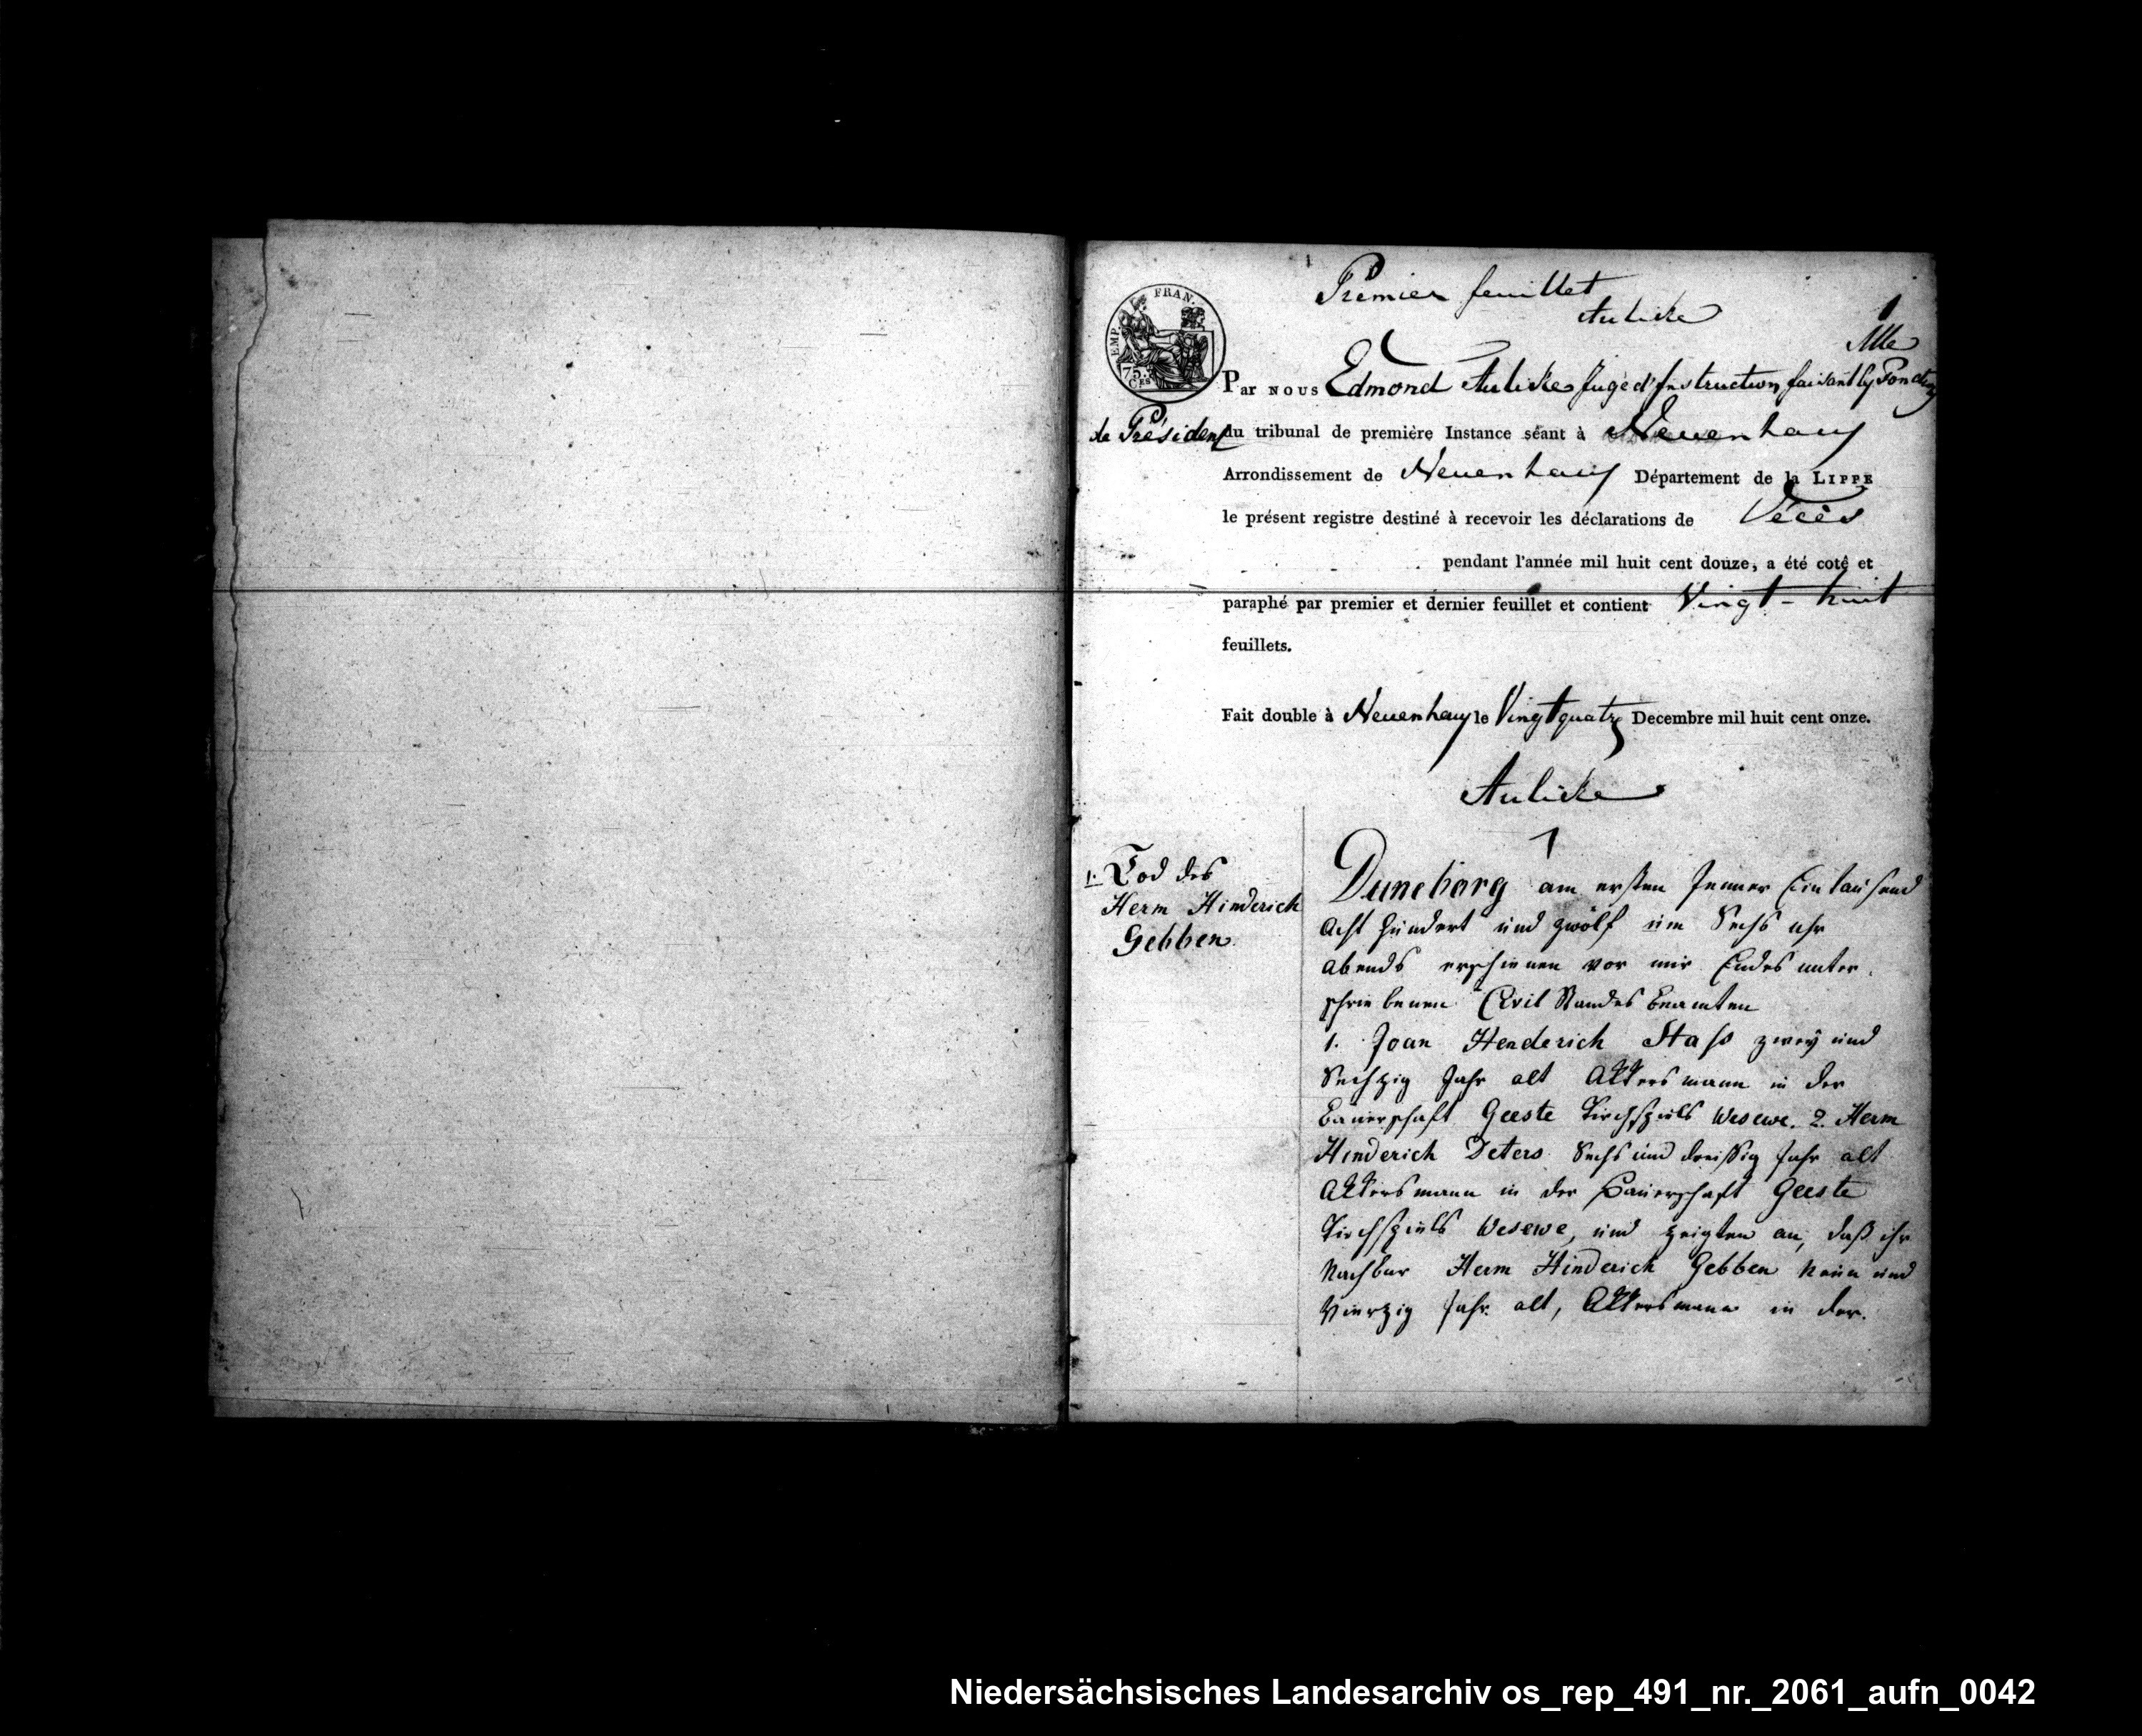 Premier feuillet
Aulike
1
EMP. FRAN.
75 Ces
Par nous Edmond Aulike Juge d'Instruction faisant les Fonctions
de Président du tribunal de première Instance séant à Neuenhauß
Arrondissement de Neuenhauß Département de la Lippe
le présent registre destiné à recevoir les déclarations de Décès
pendant l'année mil huit cent douze, a été coté et
paraphé par premier et dernier feuillet et contient Vingt-huit
feuillets.
Fait double à Neuenhauß le Vingt quatre Decembre mil huit cent onze.
Aulike
1
1. Tod des
Herm Hinderich
Gebben
Duneborg am ersten Jenner Ein tausend
Acht hundert und zwölf um Sechs uhr
abends erschienen vor mir Endes unter
schriebenen Civil Standes Beamten
1. Joan Henderich Stass zwey und
Sechzig Jahr alt Akkersmann in der
Bauerschaft Geeste Kirchspiels Wesewe. 2. Herm
Hinderich Deters Sechs und dreißig Jahr alt
Akkersmann in der Bauerschaft Geeste
Kirchspiels Wesewe, und zeigten an, daß ihr
Nachbar Herm Hinderich Gebben Neun und
Vierzig Jahr alt, Akkersmann in der.
Niedersächsisches Landesarchiv os_rep_491_nr._2061_aufn_0042